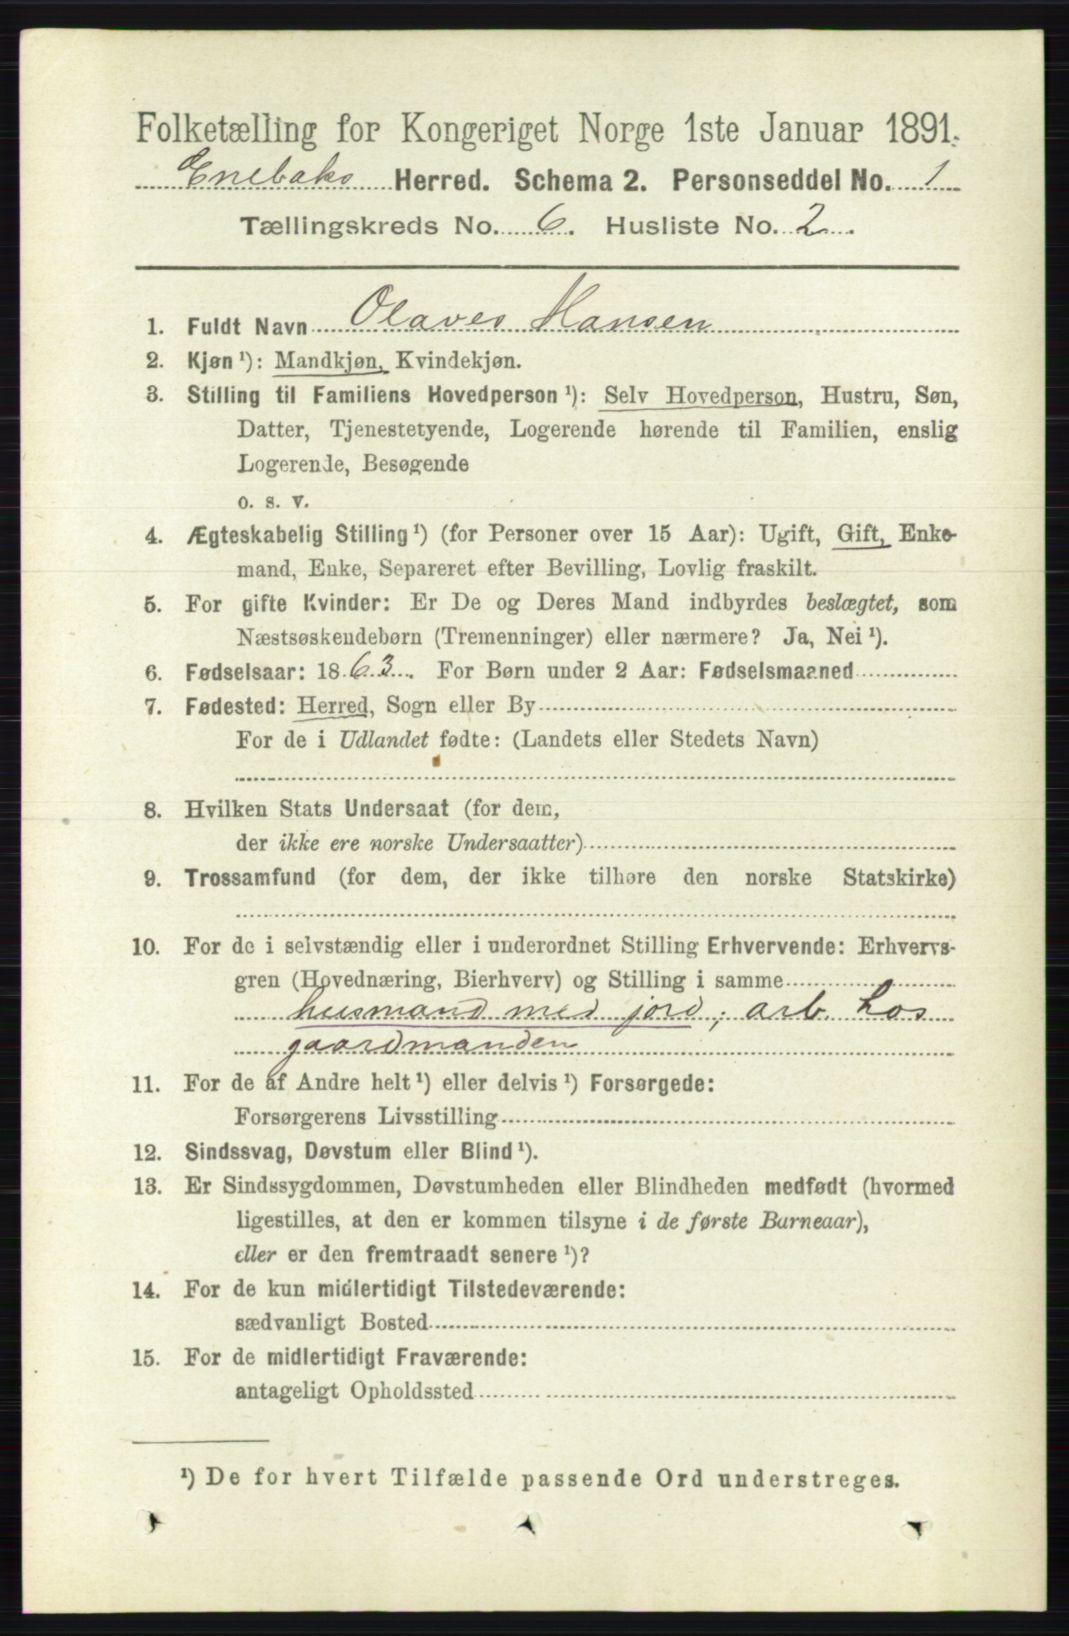 Folketælling for Kongeriget Norge 1ste Januar 1891.
Enebaks Herred. Schema 2. Personseddel No. 1
Tællingskreds No. 6. Husliste No. 2.
1. Fuldt Navn Olaves Hansen
2. Kjøn ¹): Mandkjøn, Kvindekjøn.
3. Stilling til Familiens Hovedperson ¹): Selv Hovedperson, Hustru, Søn,
Datter, Tjenestetyende, Logerende hørende til Familien, enslig
Logerende, Besøgende
o. s. v.
4. Ægteskabelig Stilling ¹) (for Personer over 15 Aar): Ugift, Gift, Enke-
mand, Enke, Separeret efter Bevilling, Lovlig fraskilt.
5. For gifte Kvinder: Er De og Deres Mand indbyrdes beslægtet, som
Næstsøskendebørn (Tremenninger) eller nærmere? Ja, Nei ¹).
6. Fødselsaar: 1863. For Børn under 2 Aar: Fødselsmaaned
7. Fødested: Herred, Sogn eller By
For de i Udlandet fødte: (Landets eller Stedets Navn)
8. Hvilken Stats Undersaat (for dem,
der ikke ere norske Undersaatter)
9. Trossamfund (for dem, der ikke tilhøre den norske Statskirke)
10. For de i selvstændig eller i underordnet Stilling Erhvervende: Erhvervs-
gren (Hovednæring, Bierhverv) og Stilling i samme
husmand med jord; arb. hos
gaardmanden
11. For de af Andre helt ¹) eller delvis ¹) Forsørgede:
Forsørgerens Livsstilling
12. Sindssvag, Døvstum eller Blind ¹).
13. Er Sindssygdommen, Døvstumheden eller Blindheden medfødt (hvormed
ligestilles, at den er kommen tilsyne i de første Barneaar),
eller er den fremtraadt senere ¹)?
14. For de kun midlertidigt Tilstedeværende:
sædvanligt Bosted
15. For de midlertidigt Fraværende:
antageligt Opholdssted
¹) De for hvert Tilfælde passende Ord understreges.